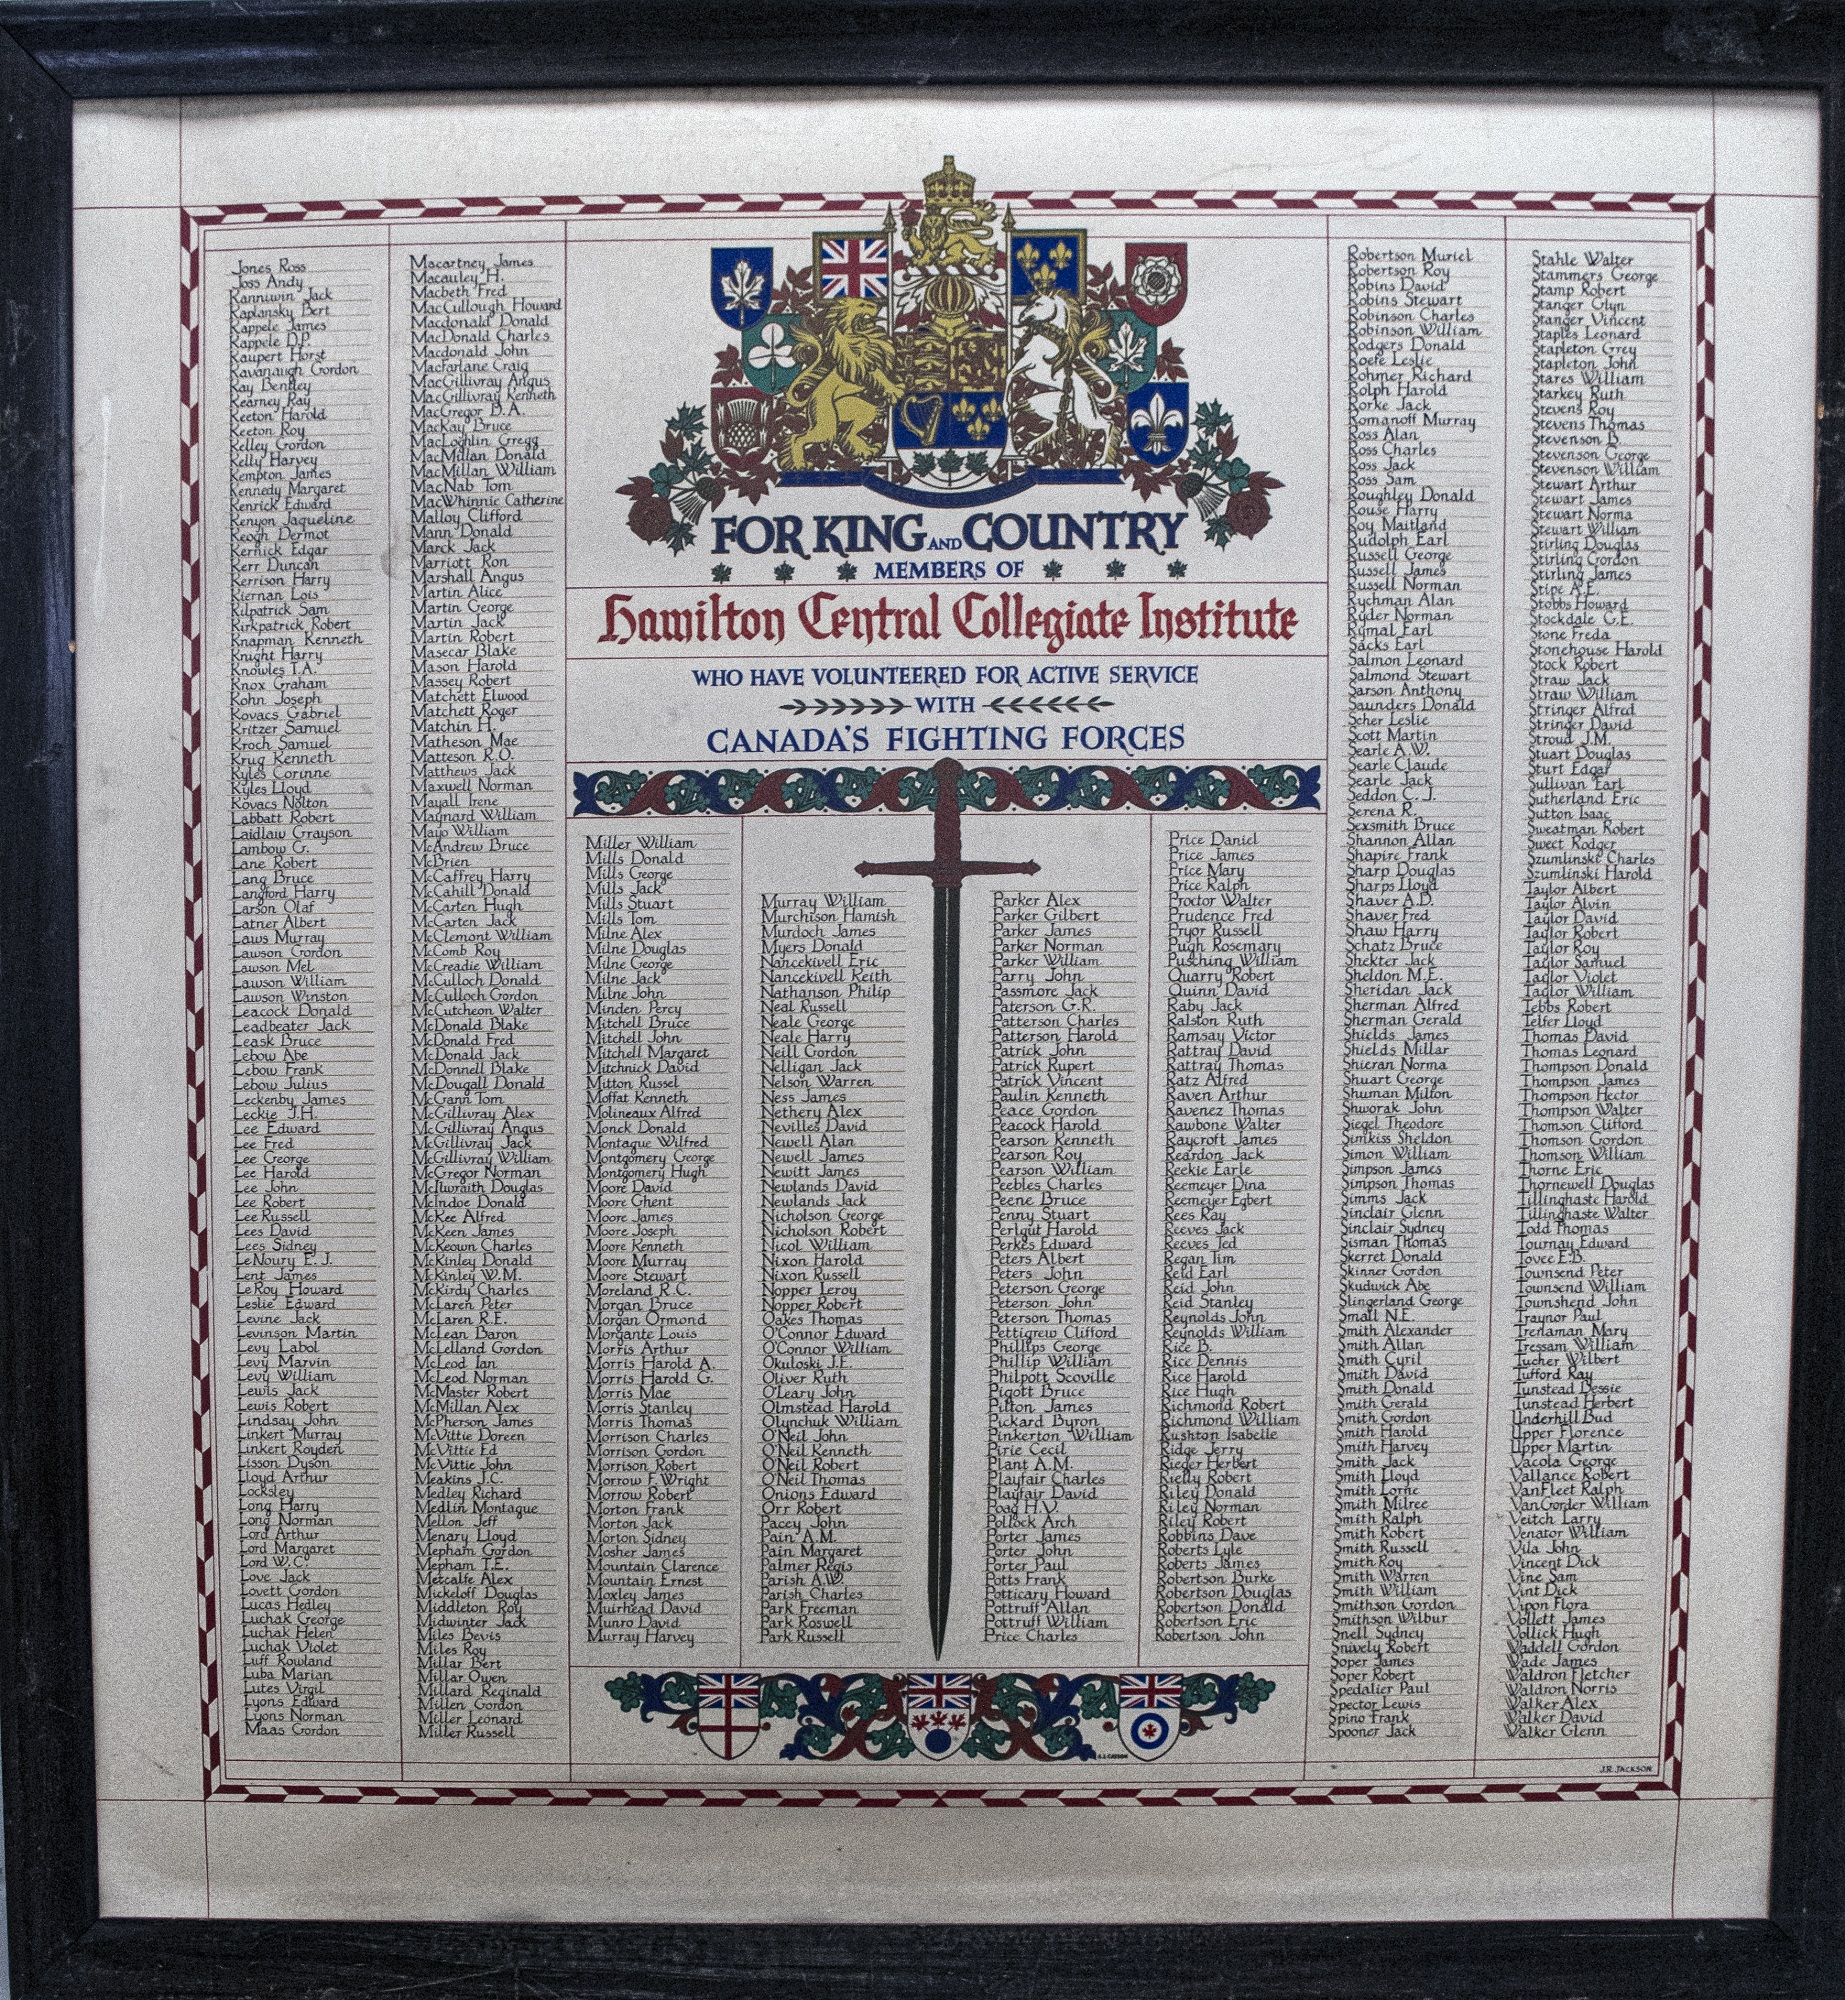 FOR KING AND COUNTRY
MEMBERS OF
Hamilton Central Collegiate Institute
WHO HAVE VOLUNTEERED FOR ACTIVE SERVICE
WITH
CANADA'S FIGHTING FORCES
Jones Ross
Joss Andy
Kanniwin Jack
Kaplansky Bert
Kappele James
Kappele D.P.
Kaupert Horst
Kavanaugh Gordon
Kay Bentley
Kearney Ray
Keeton Harold
Keeton Roy
Kelley Gordon
Kelly Harvey
Kempton James
Kennedy Margaret
Kenrick Edward
Kenyon Jaqueline
Keogh Dermot
Kernick Edgar
Kerr Duncan
Kerrison Harry
Kiernan Lois
Kilpatrick Sam
Kirkpatrick Robert
Knapman Kenneth
Knight Harry
Knowles T.A.
Knox Graham
Kohn Joseph
Kovacs Gabriel
Kritzer Samuel
Kroch Samuel
Krug Kenneth
Kyles Corinne
Kyles Lloyd
Kovacs Nolton
Labbatt Robert
Laidlaw Grayson
Lambow G.
Lane Robert
Lang Bruce
Langford Harry
Larson Olaf
Latner Albert
Laws Murray
Lawson Gordon
Lawson Mel
Lawson William
Lawson Winston
Leacock Donald
Leadbeater Jack
Leask Bruce
Lebow Abe
Lebow Frank
Lebow Julius
Leckenby James
Leckie J.H.
Lee Edward
Lee Fred
Lee George
Lee Harold
Lee John
Lee Robert
Lee Russell
Lees David
Lees Sidney
LeNoury E.J.
Lent James
LeRoy Howard
Leslie Edward
Levine Jack
Levinson Martin
Levy Labol
Levy Marvin
Levy William
Lewis Jack
Lewis Robert
Lindsay John
Linkert Murray
Linkert Royden
Lisson Dyson
Lloyd Arthur
Locksley
Long Harry
Long Norman
Lord Arthur
Lord Margaret
Lord W.C.
Love Jack
Lovett Gordon
Lucas Hedley
Luchak George
Luchak Helen
Luchak Violet
Luff Rowland
Luba Marian
Lutes Virgil
Lyons Edward
Lyons Norman
Maas Gordon
Macartney James
Macauley H.
Macbeth Fred
MacCullough Howard
Macdonald Donald
MacDonald Charles
Macdonald John
MacFarlane Craig
MacGillivray Angus
MacGillivray Kenneth
MacGregor D.A.
MacKay Bruce
MacLoghlin Gregg
MacMillan Donald
MacMillan William
MacNab Tom
MacWhinnie Catherine
Malloy Clifford
Mann Donald
Marck Jack
Marriott Ron
Marshall Angus
Martin Alice
Martin George
Martin Jack
Martin Robert
Masecar Blake
Mason Harold
Massey Robert
Matchett Elwood
Matchett Roger
Matchin H.
Matheson Mae
Matteson R.O.
Matthews Jack
Maxwell Norman
Mayall Irene
Maynard William
Mayo William
McAndrew Bruce
McBrien
McCaffrey Harry
McCahill Donald
McCarten Hugh
McCarten Jack
McClemont William
McComb Roy
McCreadie William
McCulloch Donald
McCulloch Gordon
McCutcheon Walter
McDonald Blake
McDonald Fred
McDonald Jack
McDonnell Blake
McDougall Donald
McGann Tom
McGillivray Alex
McGillivray Angus
McGillivray Jack
McGillivray William
McGregor Norman
McIlwraith Douglas
McIndoe Donald
McKee Alfred
McKeen James
McKeown Charles
McKinley Donald
McKinley W.M.
McKirdy Charles
McLaren Peter
McLaren R.E.
McLean Baron
McLelland Gordon
McLeod Ian
McLeod Norman
McMaster Robert
McMillan Alex
McPherson James
McVittie Doreen
McVittie Ed
McVittie John
Meakins J.C.
Medley Richard
Medlin Montague
Mellon Jeff
Menary Lloyd
Mepham Gordon
Mepham T.E.
Metcalfe Alex
Mickeloff Douglas
Middleton Roy
Midwinter Jack
Miles Bevis
Miles Roy
Millar Bert
Millar Owen
Millard Reginald
Millen Gordon
Miller Leonard
Miller Russell
Miller William
Mills Donald
Mills George
Mills Jack
Mills Stuart
Mills Tom
Milne Alex
Milne Douglas
Milne George
Milne Jack
Milne John
Minden Percy
Mitchell Bruce
Mitchell John
Mitchell Margaret
Mitchnick David
Mitton Russel
Moffat Kenneth
Molineaux Alfred
Monck Donald
Montague Wilfred
Montgomery George
Montgomery Hugh
Moore David
Moore Ghent
Moore James
Moore Joseph
Moore Kenneth
Moore Murray
Moore Stewart
Moreland R.C.
Morgan Bruce
Morgan Ormond
Morgante Louis
Morris Arthur
Morris Harold A.
Morris Harold G.
Morris Mae
Morris Stanley
Morris Thomas
Morrison Charles
Morrison Gordon
Morrison Robert
Morrow F. Wright
Morrow Robert
Morton Frank
Morton Jack
Morton Sidney
Mosher James
Mountain Clarence
Mountain Ernest
Moxley James
Muirhead David
Munro David
Murray Harvey
Murray William
Murchison Hamish
Murdoch James
Myers Donald
Nancekivell Eric
Nancekivell Keith
Nathanson Philip
Neal Russell
Neale George
Neale Harry
Neill Gordon
Nelligan Jack
Nelson Warren
Ness James
Nethery Alex
Nevilles David
Newell Alan
Newell James
Newitt James
Newlands David
Newlands Jack
Nicholson George
Nicholson Robert
Nicol William
Nixon Harold
Nixon Russell
Nopper Leroy
Nopper Robert
Oakes Thomas
O'Connor Edward
O'Connor William
Okuloski J.E.
Oliver Ruth
O'Leary John
Olmstead Harold
Olynchuk William
O'Neil John
O'Neil Kenneth
O'Neil Robert
O'Neil Thomas
Onions Edward
Orr Robert
Pacey John
Pain A.M.
Pain Margaret
Palmer Regis
Parish A.W.
Parish Charles
Park Freeman
Park Roswell
Park Russell
Parker Alex
Parker Gilbert
Parker James
Parker Norman
Parker William
Parry John
Passmore Jack
Paterson G.R.
Patterson Charles
Patterson Harold
Patrick John
Patrick Rupert
Patrick Vincent
Paulin Kenneth
Peace Gordon
Peacock Harold
Pearson Kenneth
Pearson Roy
Pearson William
Peebles Charles
Peene Bruce
Penny Stuart
Perlgut Harold
Perkes Edward
Peters Albert
Peters John
Peterson George
Peterson John
Peterson Thomas
Pettigrew Clifford
Phillips George
Phillip William
Philpott Scoville
Pigott Bruce
Pilton James
Pickard Byron
Pinkerton William
Pirie Cecil
Plant A.M.
Playfair Charles
Playfair David
Poag H.V.
Pollock Arch
Porter James
Porter John
Porter Paul
Potts Frank
Potticary Howard
Pottruff Allan
Pottruff William
Price Charles
Price Daniel
Price James
Price Mary
Price Ralph
Proctor Walter
Prudence Fred
Pryor Russell
Pugh Rosemary
Pusching William
Quarry Robert
Quinn David
Raby Jack
Ralston Ruth
Ramsay Victor
Rattray David
Rattray Thomas
Ratz Alfred
Raven Arthur
Ravenez Thomas
Rawbone Walter
Raycroft James
Reardon Jack
Reekie Earle
Reemeyer Dina
Reemeyer Egbert
Rees Ray
Reeves Jack
Reeves Ted
Regan Tim
Reid Earl
Reid John
Reid Stanley
Reynolds John
Reynolds William
Rice B.
Rice Dennis
Rice Harold
Rice Hugh
Richmond Robert
Richmond William
Rushton Isabelle
Ridge Jerry
Rieger Herbert
Rielly Robert
Riley Donald
Riley Norman
Riley Robert
Robbins Dave
Roberts Lyle
Roberts James
Robertson Burke
Robertson Douglas
Robertson Donald
Robertson Eric
Robertson John
Robertson Muriel
Robertson Roy
Robins David
Robins Stewart
Robinson Charles
Robinson William
Rodgers Donald
Roefe Leslie
Rohmer Richard
Rolph Harold
Rorke Jack
Romanoff Murray
Ross Alan
Ross Charles
Ross Jack
Ross Sam
Roughley Donald
Rouse Harry
Roy Maitland
Rudolph Earl
Russell George
Russell James
Russell Norman
Rychman Alan
Ryder Norman
Rymal Earl
Sacks Earl
Salmon Leonard
Salmond Stewart
Sarson Anthony
Saunders Donald
Scher Leslie
Scott Martin
Searle A.W.
Searle Claude
Searle Jack
Seddon C.J.
Serena R.
Sexsmith Bruce
Shannon Allan
Shapire Frank
Sharp Douglas
Sharps Lloyd
Shaver A.D.
Shaver Fred
Shaw Harry
Schatz Bruce
Shekter Jack
Sheldon M.E.
Sheridan Jack
Sherman Alfred
Sherman Gerald
Shields James
Shields Millar
Shieran Norma
Shuart George
Shuman Milton
Shworak John
Siegel Theodore
Simkiss Sheldon
Simon William
Simpson James
Simpson Thomas
Simms Jack
Sinclair Glenn
Sinclair Sydney
Sisman Thomas
Skerret Donald
Skinner Gordon
Skudwick Abe
Slingerland George
Small N.E.
Smith Alexander
Smith Allan
Smith Cyril
Smith David
Smith Donald
Smith Gerald
Smith Gordon
Smith Harold
Smith Harvey
Smith Jack
Smith Lloyd
Smith Lorne
Smith Milree
Smith Ralph
Smith Robert
Smith Russell
Smith Roy
Smith Warren
Smith William
Smithson Gordon
Smithson Wilbur
Snell Sydney
Snively Robert
Soper James
Soper Robert
Spedalier Paul
Spector Lewis
Spino Frank
Spooner Jack
Stahle Walter
Stammers George
Stamp Robert
Stanger Glyn
Stanger Vincent
Staples Leonard
Stapleton Grey
Stapleton John
Stares William
Starkey Ruth
Stevens Roy
Stevens Thomas
Stevenson B.
Stevenson George
Stevenson William
Stewart Arthur
Stewart James
Stewart Norma
Stewart William
Stirling Douglas
Stirling Gordon
Stirling James
Stipe A.E.
Stobbs Howard
Stockdale G.E.
Stone Freda
Stonehouse Harold
Stock Robert
Straw Jack
Straw William
Stringer Alfred
Stringer David
Stroud J.M.
Stuart Douglas
Sturt Edgar
Sullivan Earl
Sutherland Eric
Sutton Isaac
Sweatman Robert
Sweet Rodger
Szumlinski Charles
Szumlinski Harold
Taylor Albert
Taylor Alvin
Taylor David
Taylor Robert
Taylor Roy
Taylor Samuel
Taylor Violet
Taylor William
Tebbs Robert
Telfer Lloyd
Thomas David
Thomas Leonard
Thompson Donald
Thompson James
Thompson Hector
Thompson Walter
Thomson Clifford
Thomson Gordon
Thomson William
Thorne Eric
Thornewell Douglas
Tillinghaste Harold
Tillinghaste Walter
Todd Thomas
Tournay Edward
Tovee E.B.
Townsend Peter
Townsend William
Townshend John
Traynor Paul
Trenaman Mary
Tressam William
Tucher Wilbert
Tufford Ray
Tunstead Bessie
Tunstead Herbert
Underhill Bud
Upper Florence
Upper Martin
Vacola George
Vallance Robert
VanFleet Ralph
VanGorder William
Veitch Larry
Venator William
Vila John
Vincent Dick
Vine Sam
Vint Dick
Vipon Flora
Vollett James
Vollick Hugh
Waddell Gordon
Wade James
Waldron Fletcher
Waldron Norris
Walker Alex
Walker David
Walker Glenn
A.J. CASSON
J.R. JACKSON